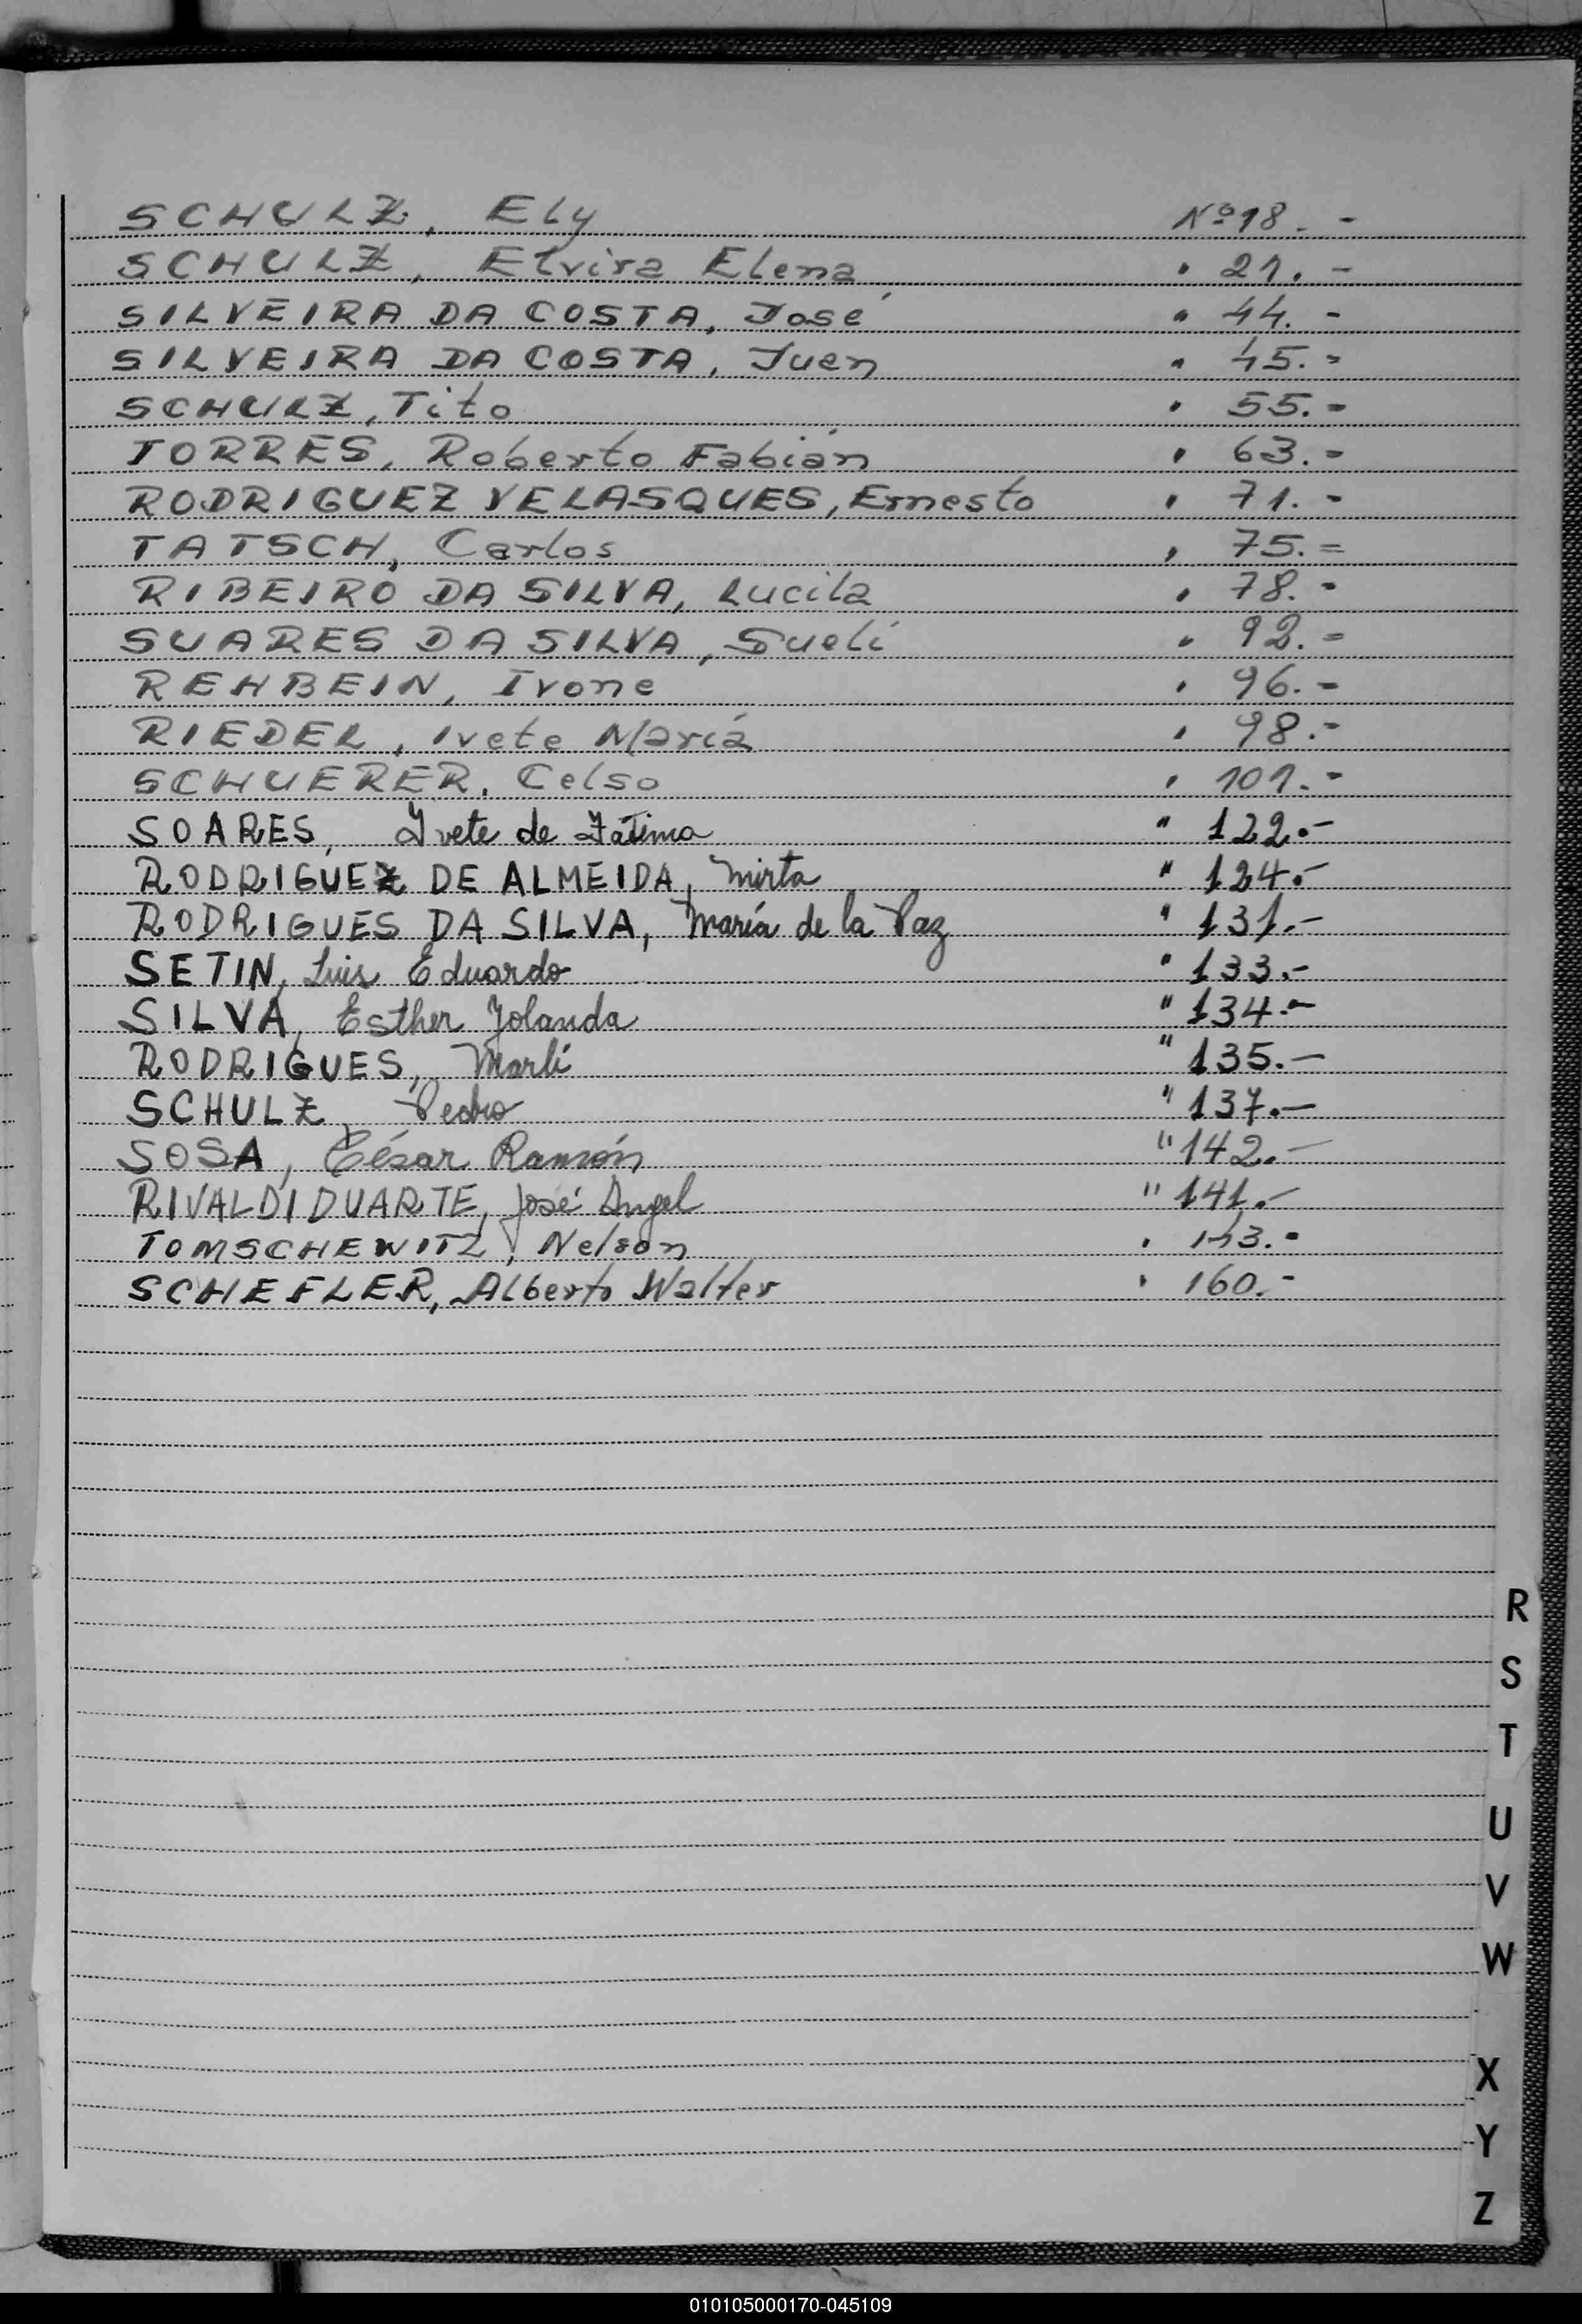 SCHULZ, Ely Nº 18.-
SCHULZ, Elvira Elena " 21.-
SILVEIRA DA COSTA, José " 44.-
SILVEIRA DA COSTA, Juan " 45.-
SCHULZ, Tito " 55.-
TORRES, Roberto Fabián " 63.-
RODRIGUEZ VELASQUES, Ernesto " 71.-
TATSCH, Carlos " 75.=
RIBEIRO DA SILVA, Lucila " 78.-
SUARES DA SILVA, Sueli " 92.=
REHBEIN, Ivone " 96.-
RIEDEL, Ivete María " 98.-
SCHUERER, Celso " 101.-
SOARES, Ivete de Fátima " 122.-
RODRIGUEZ DE ALMEIDA, Mirta " 124.-
RODRIGUES DA SILVA, María de la Paz " 131.-
SETIN, Luis Eduardo " 133.-
SILVA, Esther Yolanda " 134.-
RODRIGUES, Marlí " 135.-
SCHULZ, Pedro " 137.-
SOSA, César Ramón " 142.-
RIVALDI DUARTE, José Angel " 141.-
TOMSCHEWITZ, Nelson " 143.-
SCHEFLER, Alberto Walter " 160.-
R
S
T
U
V
W
X
Y
Z
010105000170-045109